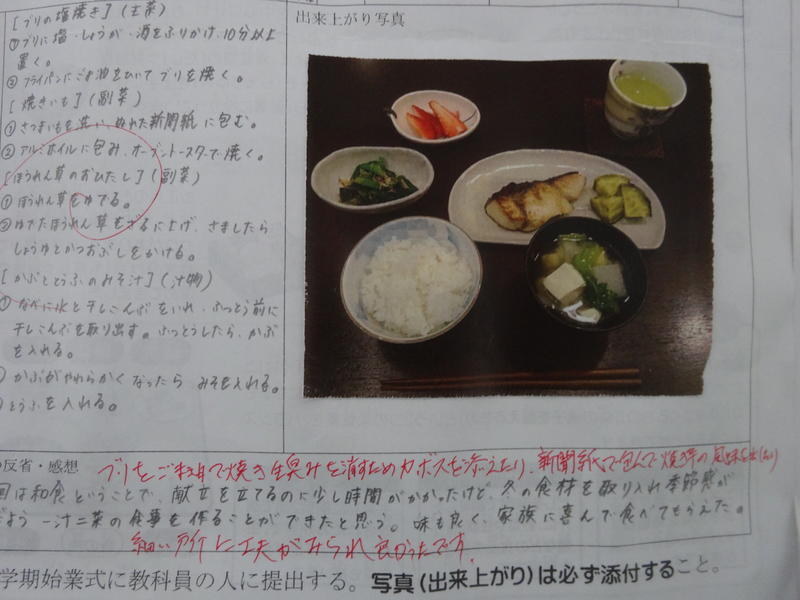 [ブリの塩焼き](主菜)
①ブリに塩・しょうが・酒をふりかけ、10分以上
置く。
②フライパンにごま油をひいてブリを焼く。
[焼きいも](副菜)
①さつまいもを洗い、ぬれた新聞紙に包む。
②アルミホイルに包み、オーブントースターで焼く。
[ほうれん草のおひたし](副菜)
①ほうれん草をゆでる。
②ゆでたほうれん草をざるに上げ、さましたら
しょうゆとかつおぶしをかける。
[かぶととうふのみそ汁](汁物)
①なべに水と干しこんぶをいれ、ふっとう前に
干しこんぶを取り出す。ふっとうしたら、かぶ
を入れる。
かぶがやわらかくなったらみそを入れる。
とうふを入れる。
出来上がり写真
反省・感想
ブリをごま油で焼き生臭みを消すためカボスを添えたり、新聞紙で包んで焼き芋の風味を出したり
回は和食ということで、献立を立てるのに少し時間がかかったけど、冬の食材を取り入れ季節感が
よう一汁二菜の食事を作ることができたと思う。味も良く、家族に喜んで食べてもらえた。
細い所に工夫がみられ良かったです。
学期始業式に教科員の人に提出する。写真(出来上がり)は必ず添付すること。